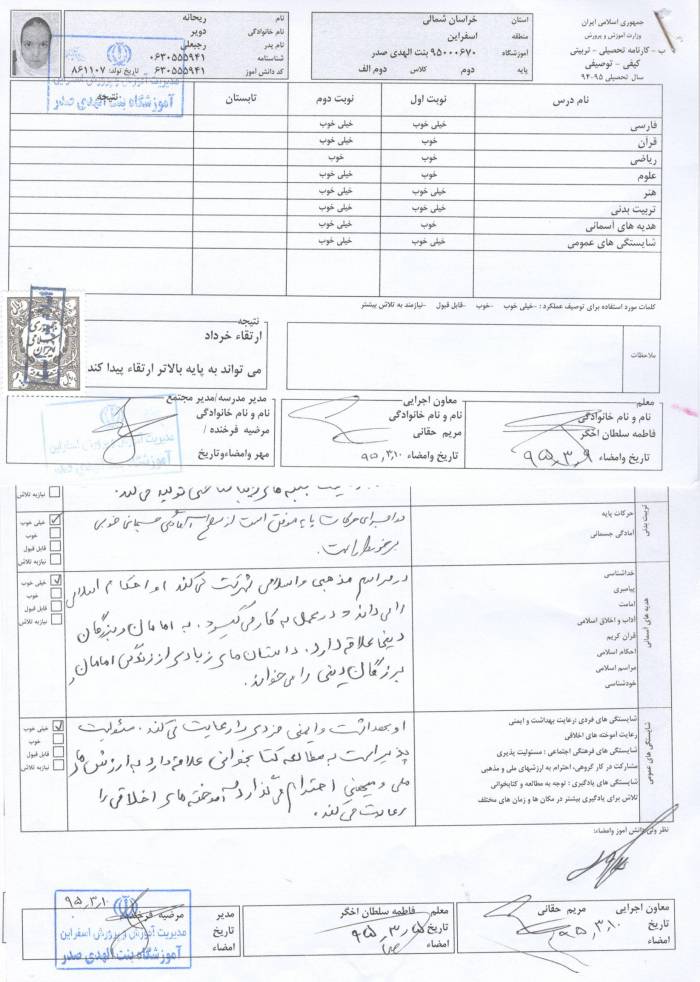 جمهوری اسلامی ایران
وزارت آموزش و پرورش
ب - کارنامه تحصیلی - تربیتی
کیفی - توصیفی
سال تحصیلی ۹۵-۹۴
استان خراسان شمالی
منطقه اسفراین
آموزشگاه ۹۵۰۰۰۶۷۰ بنت الهدی صدر
پایه دوم کلاس دوم الف
نام ریحانه
نام خانوادگی دویر
نام پدر رجبعلی
شناسنامه ۰۶۳۰۵۵۵۹۴۱
کد دانش آموز ۰۶۳۰۵۵۵۹۴۱ تاریخ تولد: ۸۶۱۱۰۷
مدیریت آموزش و پرورش اسفراین
آموزشگاه بنت الهدی صدر
نام درس نوبت اول نوبت دوم تابستان نتیجه
فارسی خیلی خوب خیلی خوب
قرآن خوب خیلی خوب
ریاضی خوب خوب
علوم خوب خیلی خوب
هنر خیلی خوب خیلی خوب
تربیت بدنی خیلی خوب خیلی خوب
هدیه های آسمانی خوب خیلی خوب
شایستگی های عمومی خیلی خوب خیلی خوب
کلمات مورد استفاده برای توصیف عملکرد : -خیلی خوب -خوب -قابل قبول -نیازمند به تلاش بیشتر
ملاحظات
نتیجه
ارتقاء خرداد
می تواند به پایه بالاتر ارتقاء پیدا کند
معلم
نام و نام خانوادگی
فاطمه سلطان اخگر
تاریخ وامضاء ۹۵,۳,۹
معاون اجرایی
نام و نام خانوادگی
مریم حقانی
تاریخ وامضاء ۹۵,۳,۱۰
مدیر مدرسه/مدیر مجتمع
نام و نام خانوادگی
مرضیه فرخنده /
مهر وامضاءوتاریخ
مدیریت آموزش و پرورش اسفراین
نیازبه تلاش
تربیت بدنی
حرکات پایه
آمادگی جسمانی
برخوردار است.
خیلی خوب
خوب
قابل قبول
نیازبه تلاش
هدیه های آسمانی
خداشناسی
پیامبری
امامت
آداب و اخلاق اسلامی
قرآن کریم
احکام اسلامی
مراسم اسلامی
خودشناسی
در مراسم مذهبی و اسلامی شرکت می کند او احکام اسلامی
را می داند و در عمل به کار می گیرد. به امامان و بزرگان
دینی علاقه دارد. داستان های زیادی از زندگی امامان و
بزرگان دینی را می خواند.
خیلی خوب
خوب
قابل قبول
نیازبه تلاش
شایستگی های عمومی
شایستگی های فردی :رعایت بهداشت و ایمنی
رعایت آموخته های اخلاقی
شایستگی های فرهنگی اجتماعی : مسئولیت پذیری
مشارکت در کار گروهی، احترام به ارزشهای ملی و مذهبی
شایستگی های یادگیری : توجه به مطالعه و کتابخوانی
تلاش برای یادگیری بیشتر در مکان ها و زمان های مختلف
او بهداشت و ایمنی فردی را رعایت می کند. مسئولیت
پذیر است به مطالعه کتابخوانی علاقه دارد به ارزش های
ملی و میهنی احترام می گذارد و آموخته های اخلاقی را
رعایت می کند.
خیلی خوب
خوب
قابل قبول
نیازبه تلاش
نظر ولی دانش آموز وامضاء:
معاون اجرایی مریم حقانی
تاریخ ۹۵,۳,۱۰
امضاء
معلم فاطمه سلطان اخگر
تاریخ
امضاء
۹۵,۳,۱۰
مدیر مرضیه فرخنده
تاریخ
امضاء
مدیریت آموزش و پرورش اسفراین
آموزشگاه بنت الهدی صدر